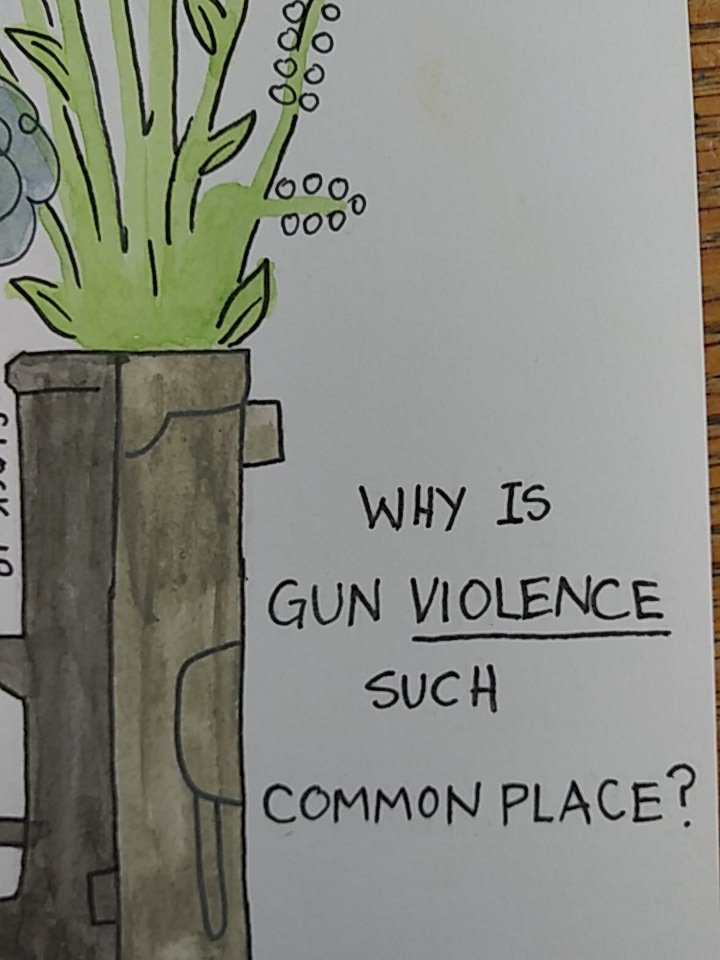 WHY IS
GUN VIOLENCE
SUCH
COMMON PLACE?